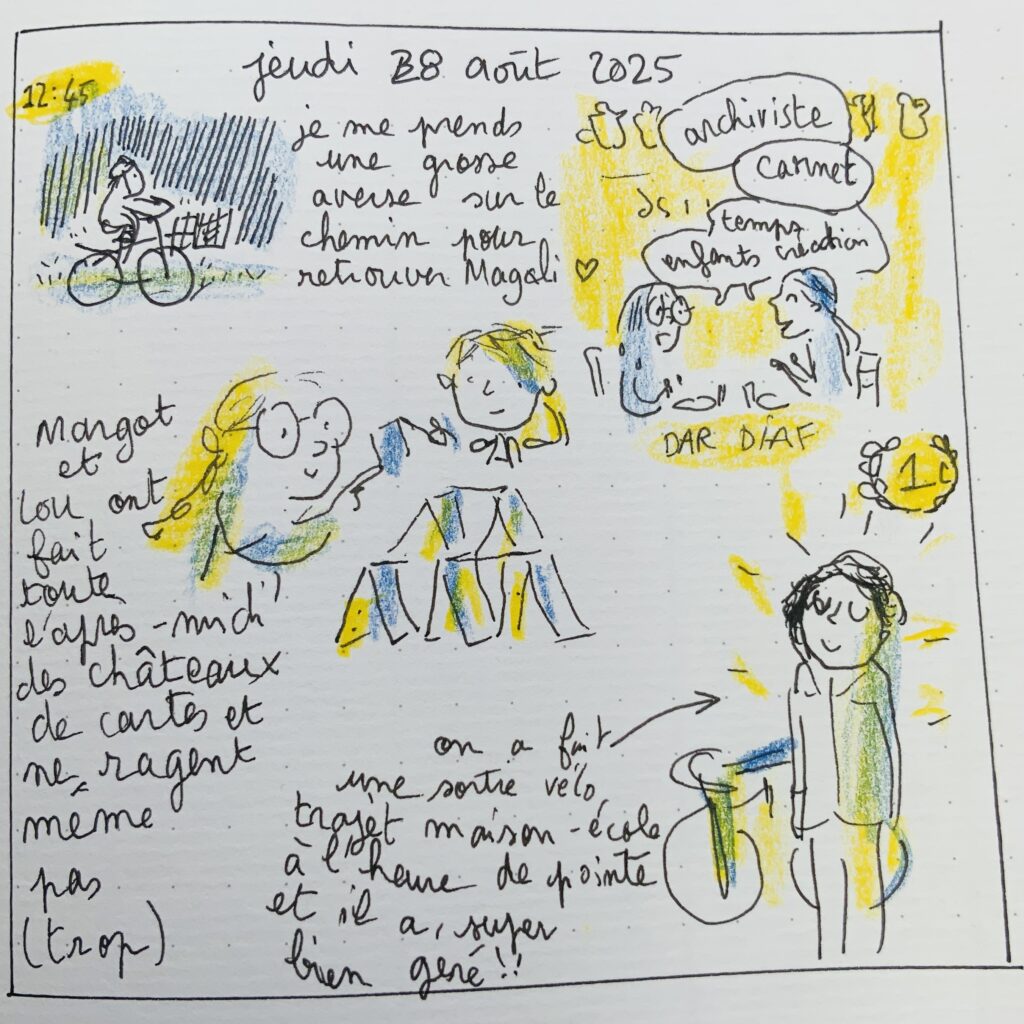 jeudi 28 août 2025
12:45
je me prends
une grosse
averse sur le
chemin pour
retrouver Magali ♡
archiviste
carnet
temps
enfants création
DAR DIAF
Margot
et
Lou ont
fait
toute
l'après-midi
des châteaux
de cartes et
ne ragent
même
pas
(trop)
1
on a fait
une sortie vélo,
trajet maison-école
à l'heure de pointe
et il a super
bien géré!!